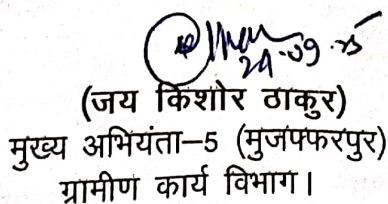 24-09-25
(जय किशोर ठाकुर)
मुख्य अभियंता–5 (मुजफ्फरपुर)
ग्रामीण कार्य विभाग।